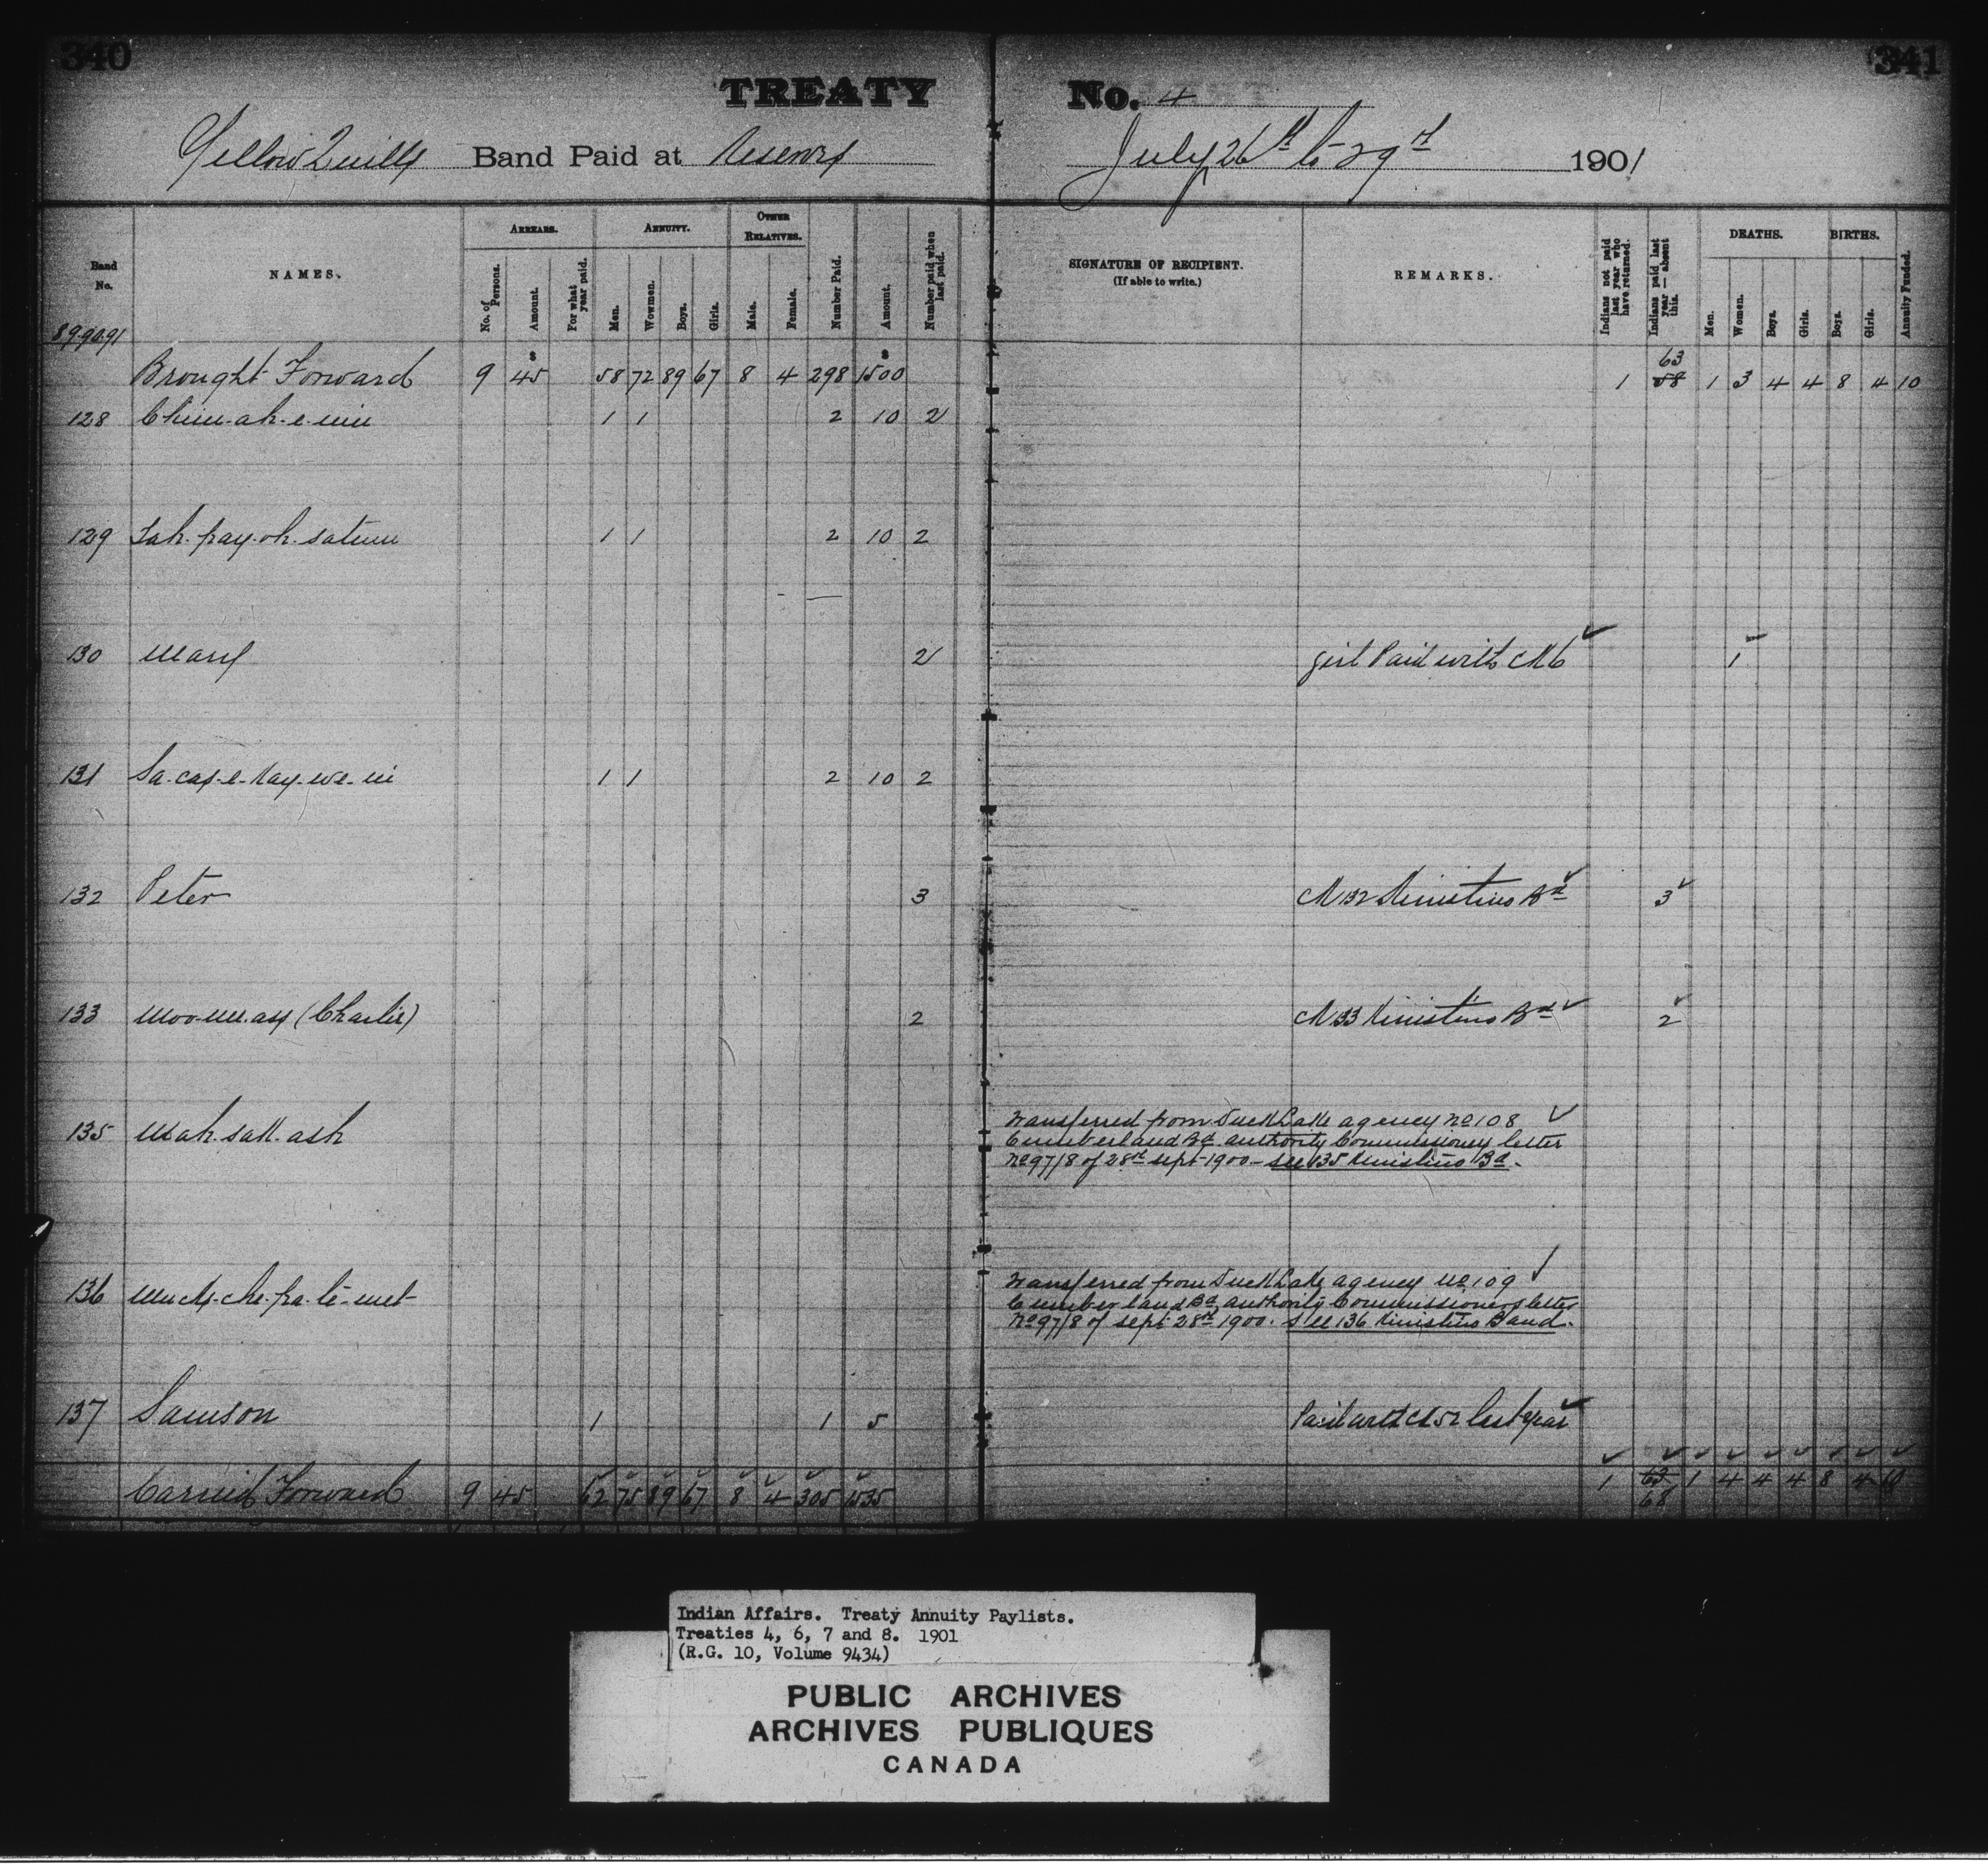 340
341
TREATY No. 4
Yellow Quills Band Paid at Reserve July 26th to 29th 1901
Band No.
NAMES.
ARREARS.
No. of Persons.
Amount.
For what year paid.
ANNUITY.
Men.
Wowmen.
Boys.
Girls.
OTHER RELATIVES.
Male.
Female.
Number Paid.
Amount.
Number paid when last paid.
SIGNATURE OF RECIPIENT.
(If able to write.)
REMARKS.
Indians not paid last year who have returned.
Indians paid last year—absent this.
DEATHS.
Men.
Women.
Boys.
Girls.
BIRTHS.
Boys.
Girls.
Annuity Funded.
89-90-91
Brought Forward 9 45 58 72 89 67 8 4 298 1500 1 63 58 1 3 4 4 8 4 10
128 Chim-ah-e-min 1 1 2 10 2
129 Tah-pay-oh-satum 1 1 2 10 2
130 Mary 2 girl Paid with No 6 1
131 Sa-cas-e-Kay-we-in 1 1 2 10 2
132 Peter 3 No 132 Kinistino Bd 3
133 Moo-me-asy (Charlie) 2 No 133 Kinistino Bd 2
135 Mah-sak-ash Transferred from Duck Lake agency No 108
Cumberland Bd. authority Commissioners letter
No 97/8 of 28th Sept 1900 - see 135 Kinistino Bd.
136 Transferred from Duck Lake agency No 109
Cumberland Bd. authority Commissioners letter
No 97/8 of Sept 28th 1900. See 136 Kinistino Band.
137 Samson 1 1 5 Paid with No 52 last year
Carried Forward 9 45 62 75 89 67 8 4 305 1535 1 63 68 1 4 4 4 8 4 10
Indian Affairs. Treaty Annuity Paylists.
Treaties 4, 6, 7 and 8. 1901
(R.G. 10, Volume 9434)
PUBLIC ARCHIVES
ARCHIVES PUBLIQUES
CANADA